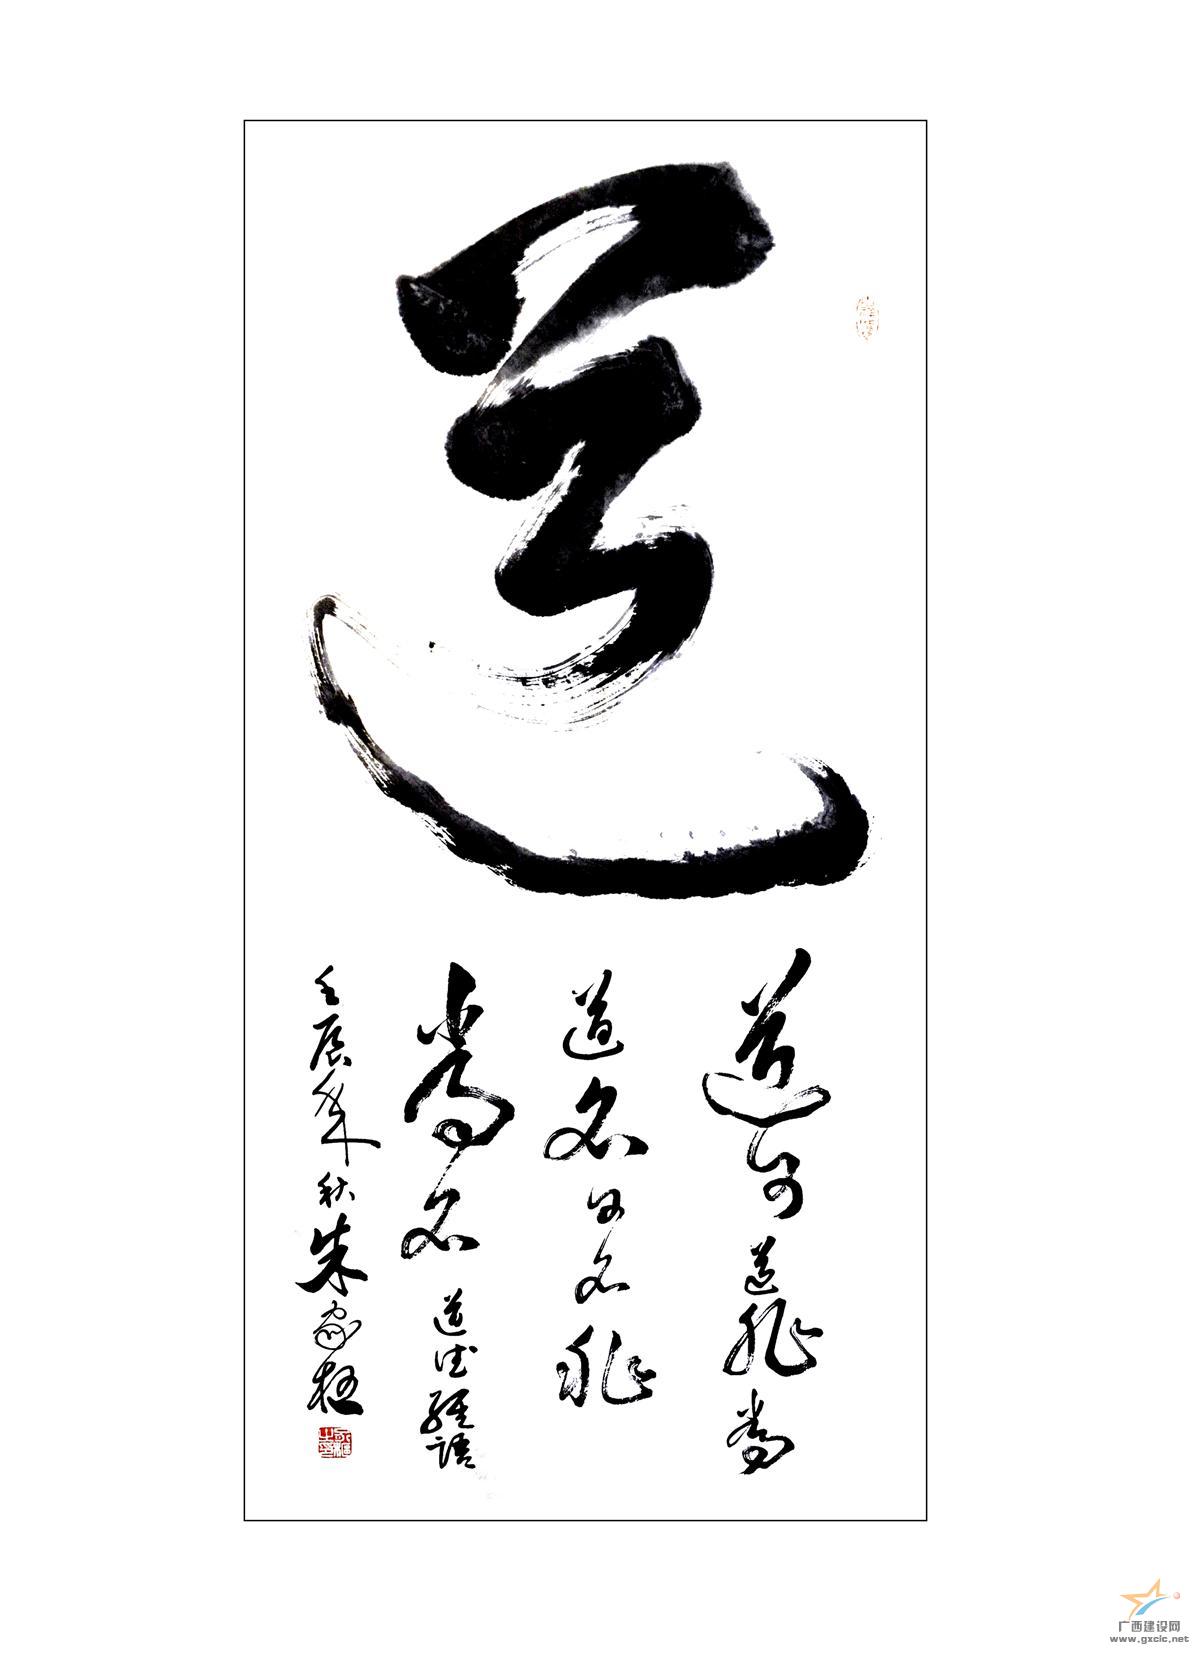 道
道可道非常
道名可名非
常名道德经语
壬辰年秋朱家桓
广西建设网
www.gxcic.net